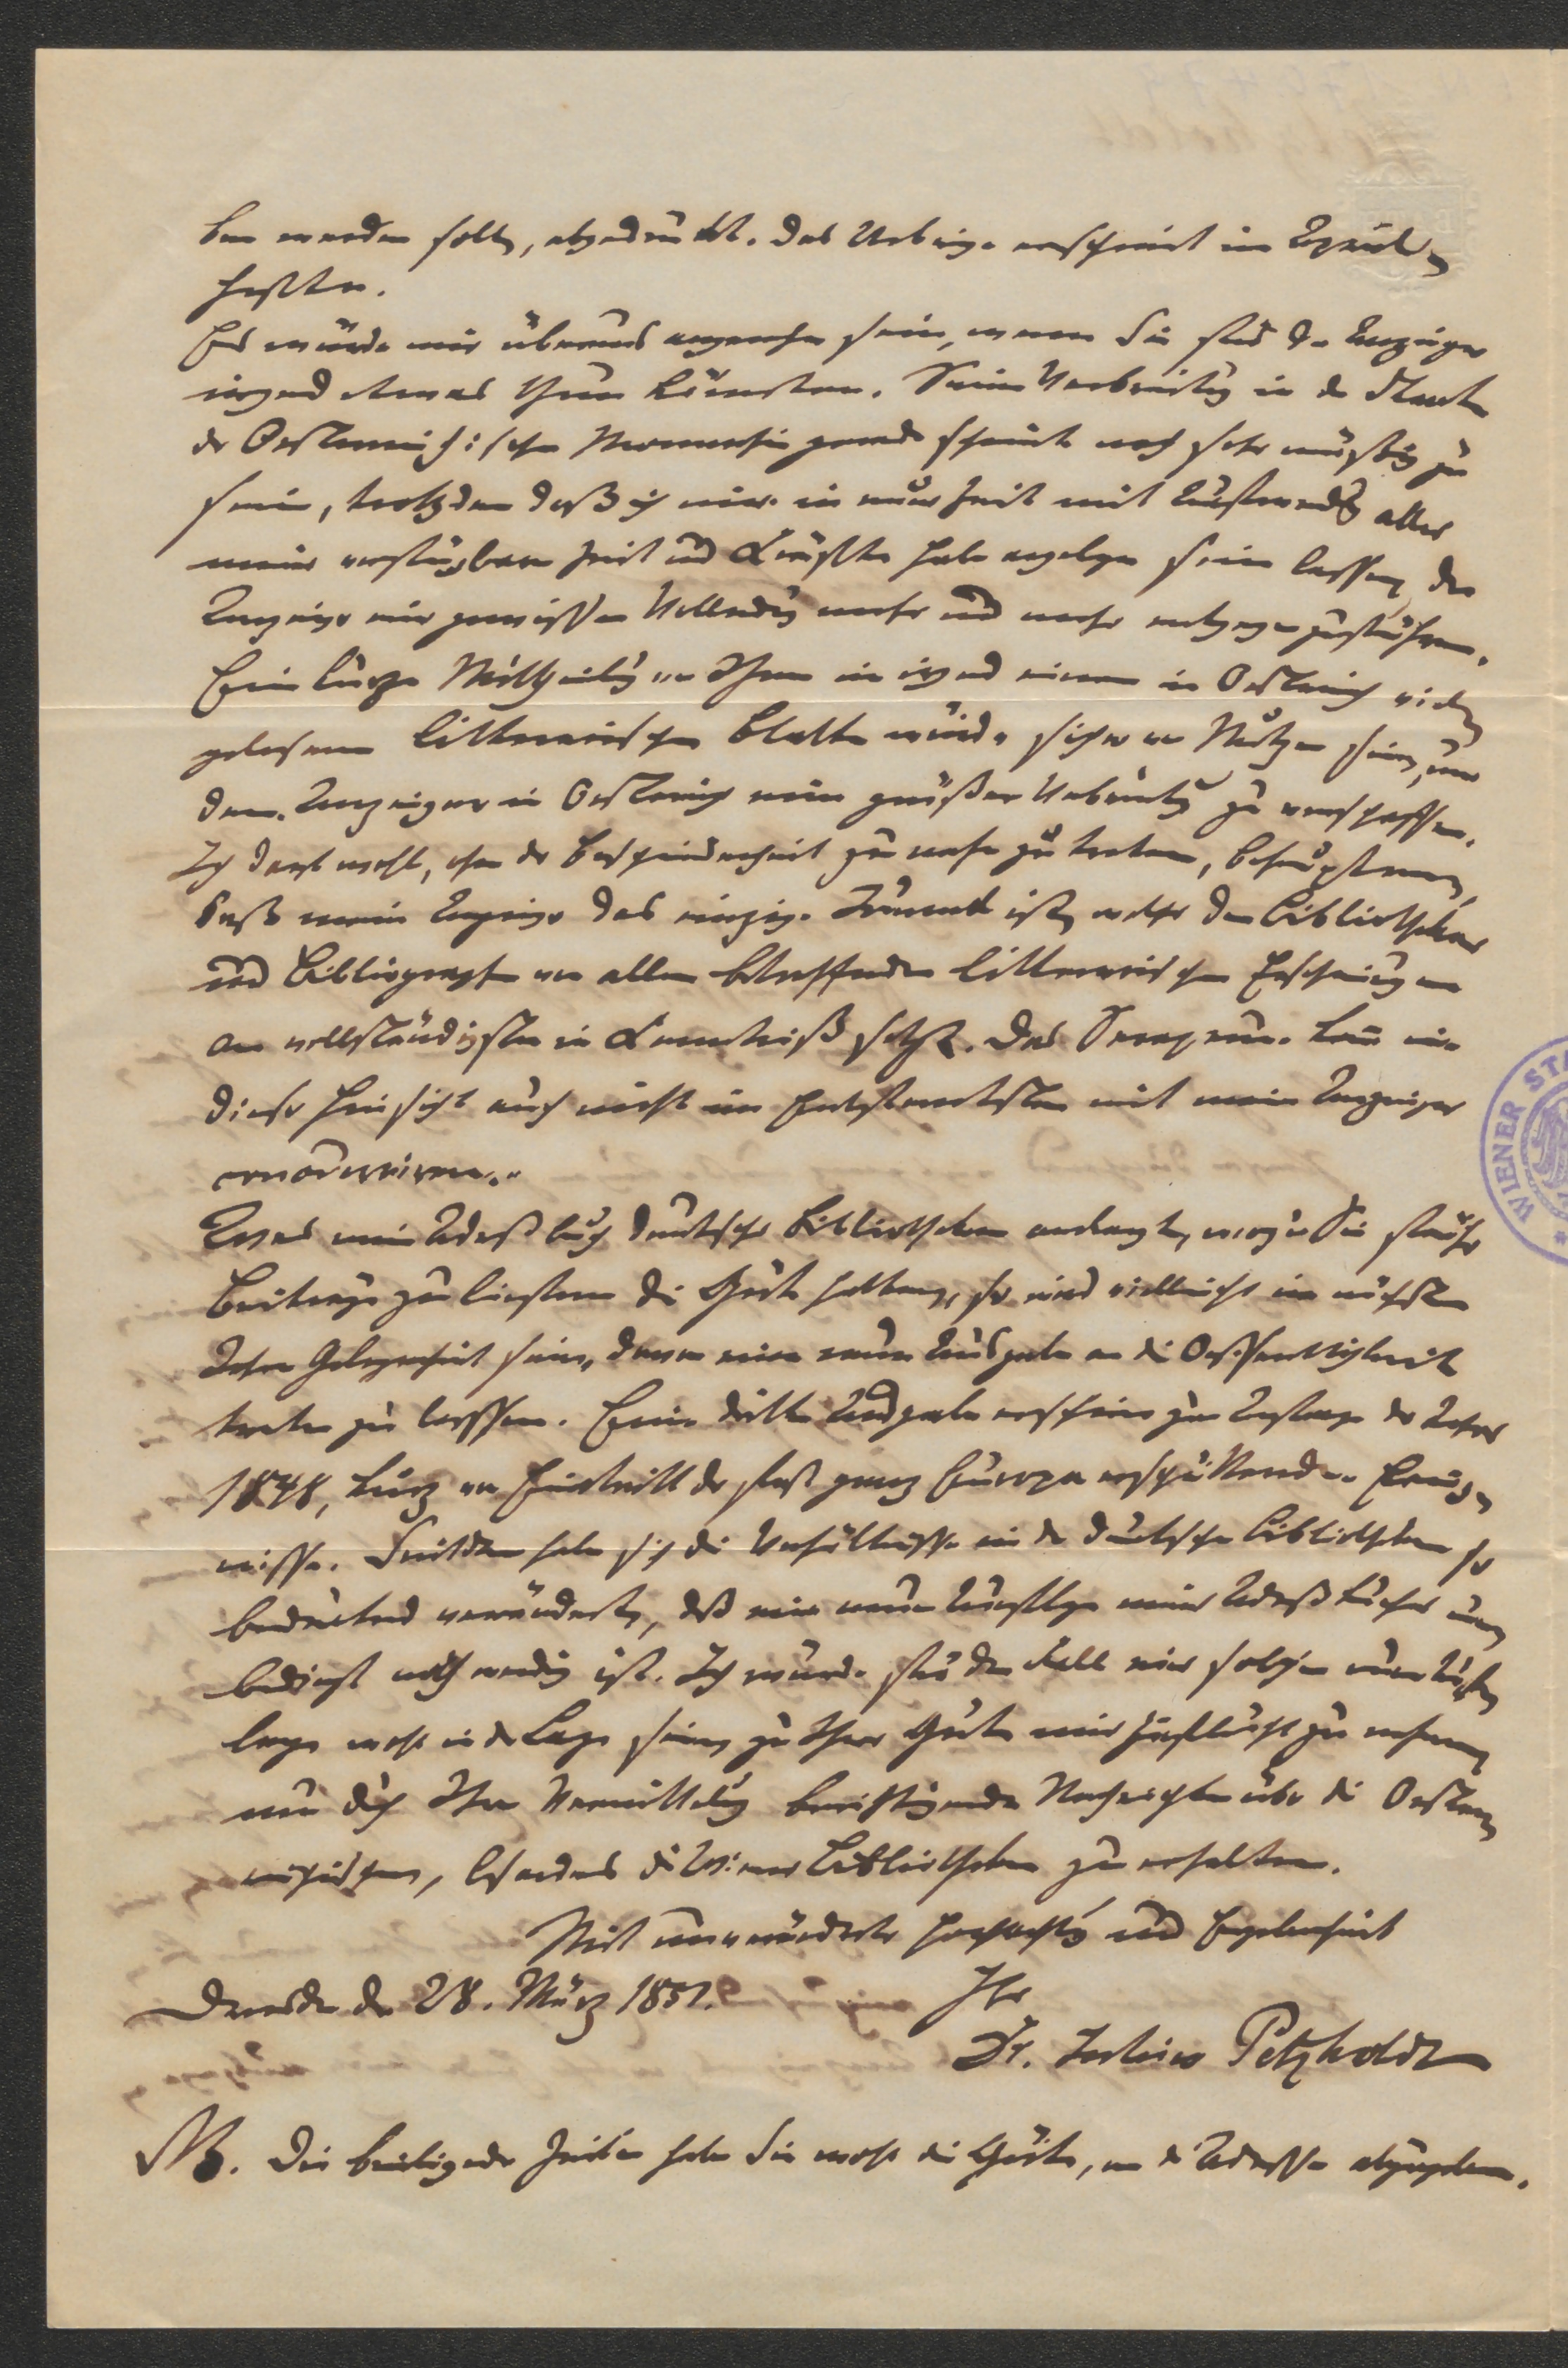 ben werden sollte, abgedruckt. Das Uebrige erscheint im April-
hefte.
Es würde mir überaus angenehm sein, wenn Sie für den Anzeiger
irgend etwas thun könnten. Seine Verbreitung in den Staaten
der Oesterreichischen Monarchie gerade scheint noch sehr mäßig zu
sein, trotzdem daß ich mir in neuer Zeit mit Aufwendung aller
meiner verfügbaren Zeit und Kräfte habe angelegen sein lassen, den
Anzeiger einer gewissen Vollendung mehr und mehr entgegenzuführen.
Eine kurze Mittheilung von Ihnen in irgend einem in Oesterreich viel-
gelesenen litterarischen Blatte würde sicher von Nutzen sein, um
dem Anzeiger in Oesterreich eine größere Verbreitung zu verschaffen.
Ich darf wohl, ohne der Bescheidenheit zu nahe zu treten, behaupten,
daß mein Anzeiger das einzige Journal ist, welches den Bibliothekar
und Bibliographen von allen betreffenden litterarischen Erscheinungen
am vollständigsten in Kenntniß setzt. Das Serapeum kann in
dieser Hinsicht auch nicht im Entferntesten mit meinem Anzeiger
concurriren.
Was mein Adreßbuch deutscher Bibliotheken anlangt, wozu Sie früher
Beiträge zu liefern die Güte hatten, so wird vielleicht im nächsten
Jahre Gelegenheit sein, davon eine neue Ausgabe an die Oeffentlichkeit
treten zu lassen. Eine dritte Ausgabe erschien zu Anfang des Jahres
1848, kurz vor Eintritt der fast ganz Europa erschütternden Ereig-
nisse. Seitdem haben sich die Verhältnisse in den deutschen Bibliotheken so
bedeutend verändert, daß eine neue Auflage meines Adreßbuches un-
bedingt nothwendig ist. Ich würde für den Fall einer solchen neuen Auf-
lage wohl in der Lage sein, zu Ihrer Güte meine Zuflucht zu nehmen,
um durch Ihre Vermittelung berichtigende Nachrichten über die Oester-
reichischen, besonders die Wiener Bibliotheken zu erhalten.
Mit unveränderter Hochachtung und Ergebenheit
Dresden den 28. März 1851.
Ihr
Dr. Julius Petzholdt
NB. Die beiliegenden Zeilen haben Sie wohl die Güte, an die Adresse abzugeben.
WIENER STA